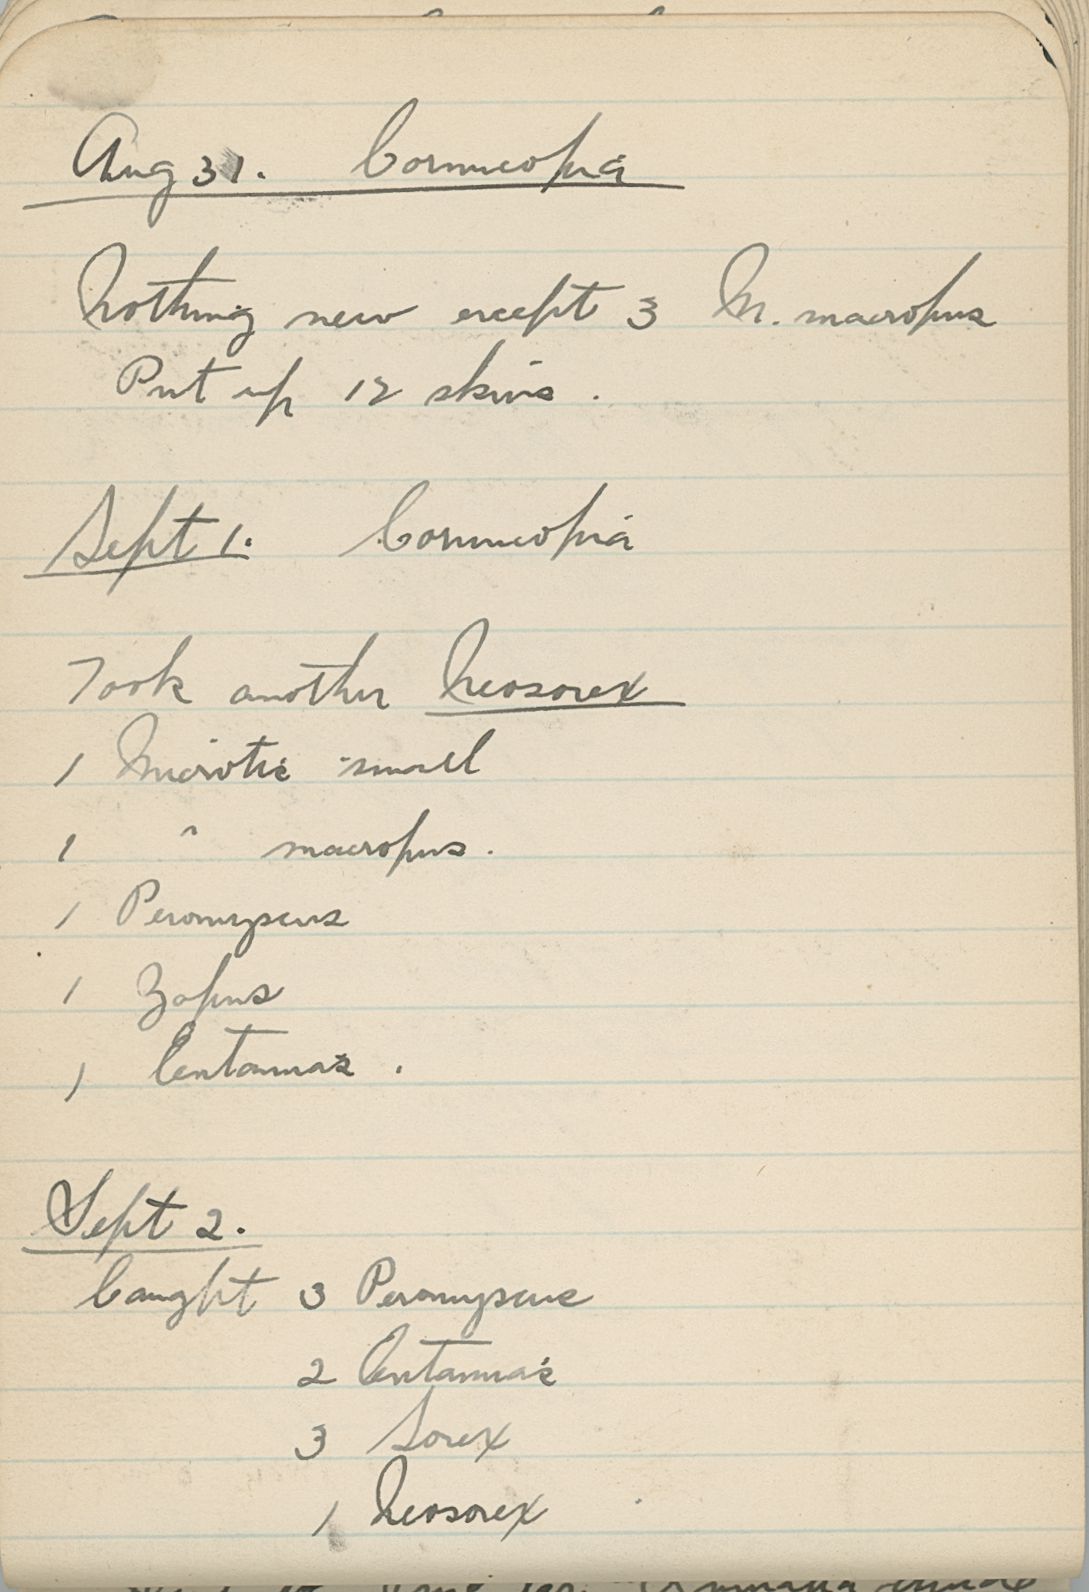 Aug 31. Cornucopia
Nothing new except 3 M. macropus
Put up 12 skins.
Sept 1. Cornucopia
Took another Neosorex
1 Microtis small
1 " macropus.
1 Peromyscus
1 Zapus
1 Eutamias.
Sept 2.
Caught 3 Peromyscus
2 Eutamias
3 Sorex
1 Neosorex